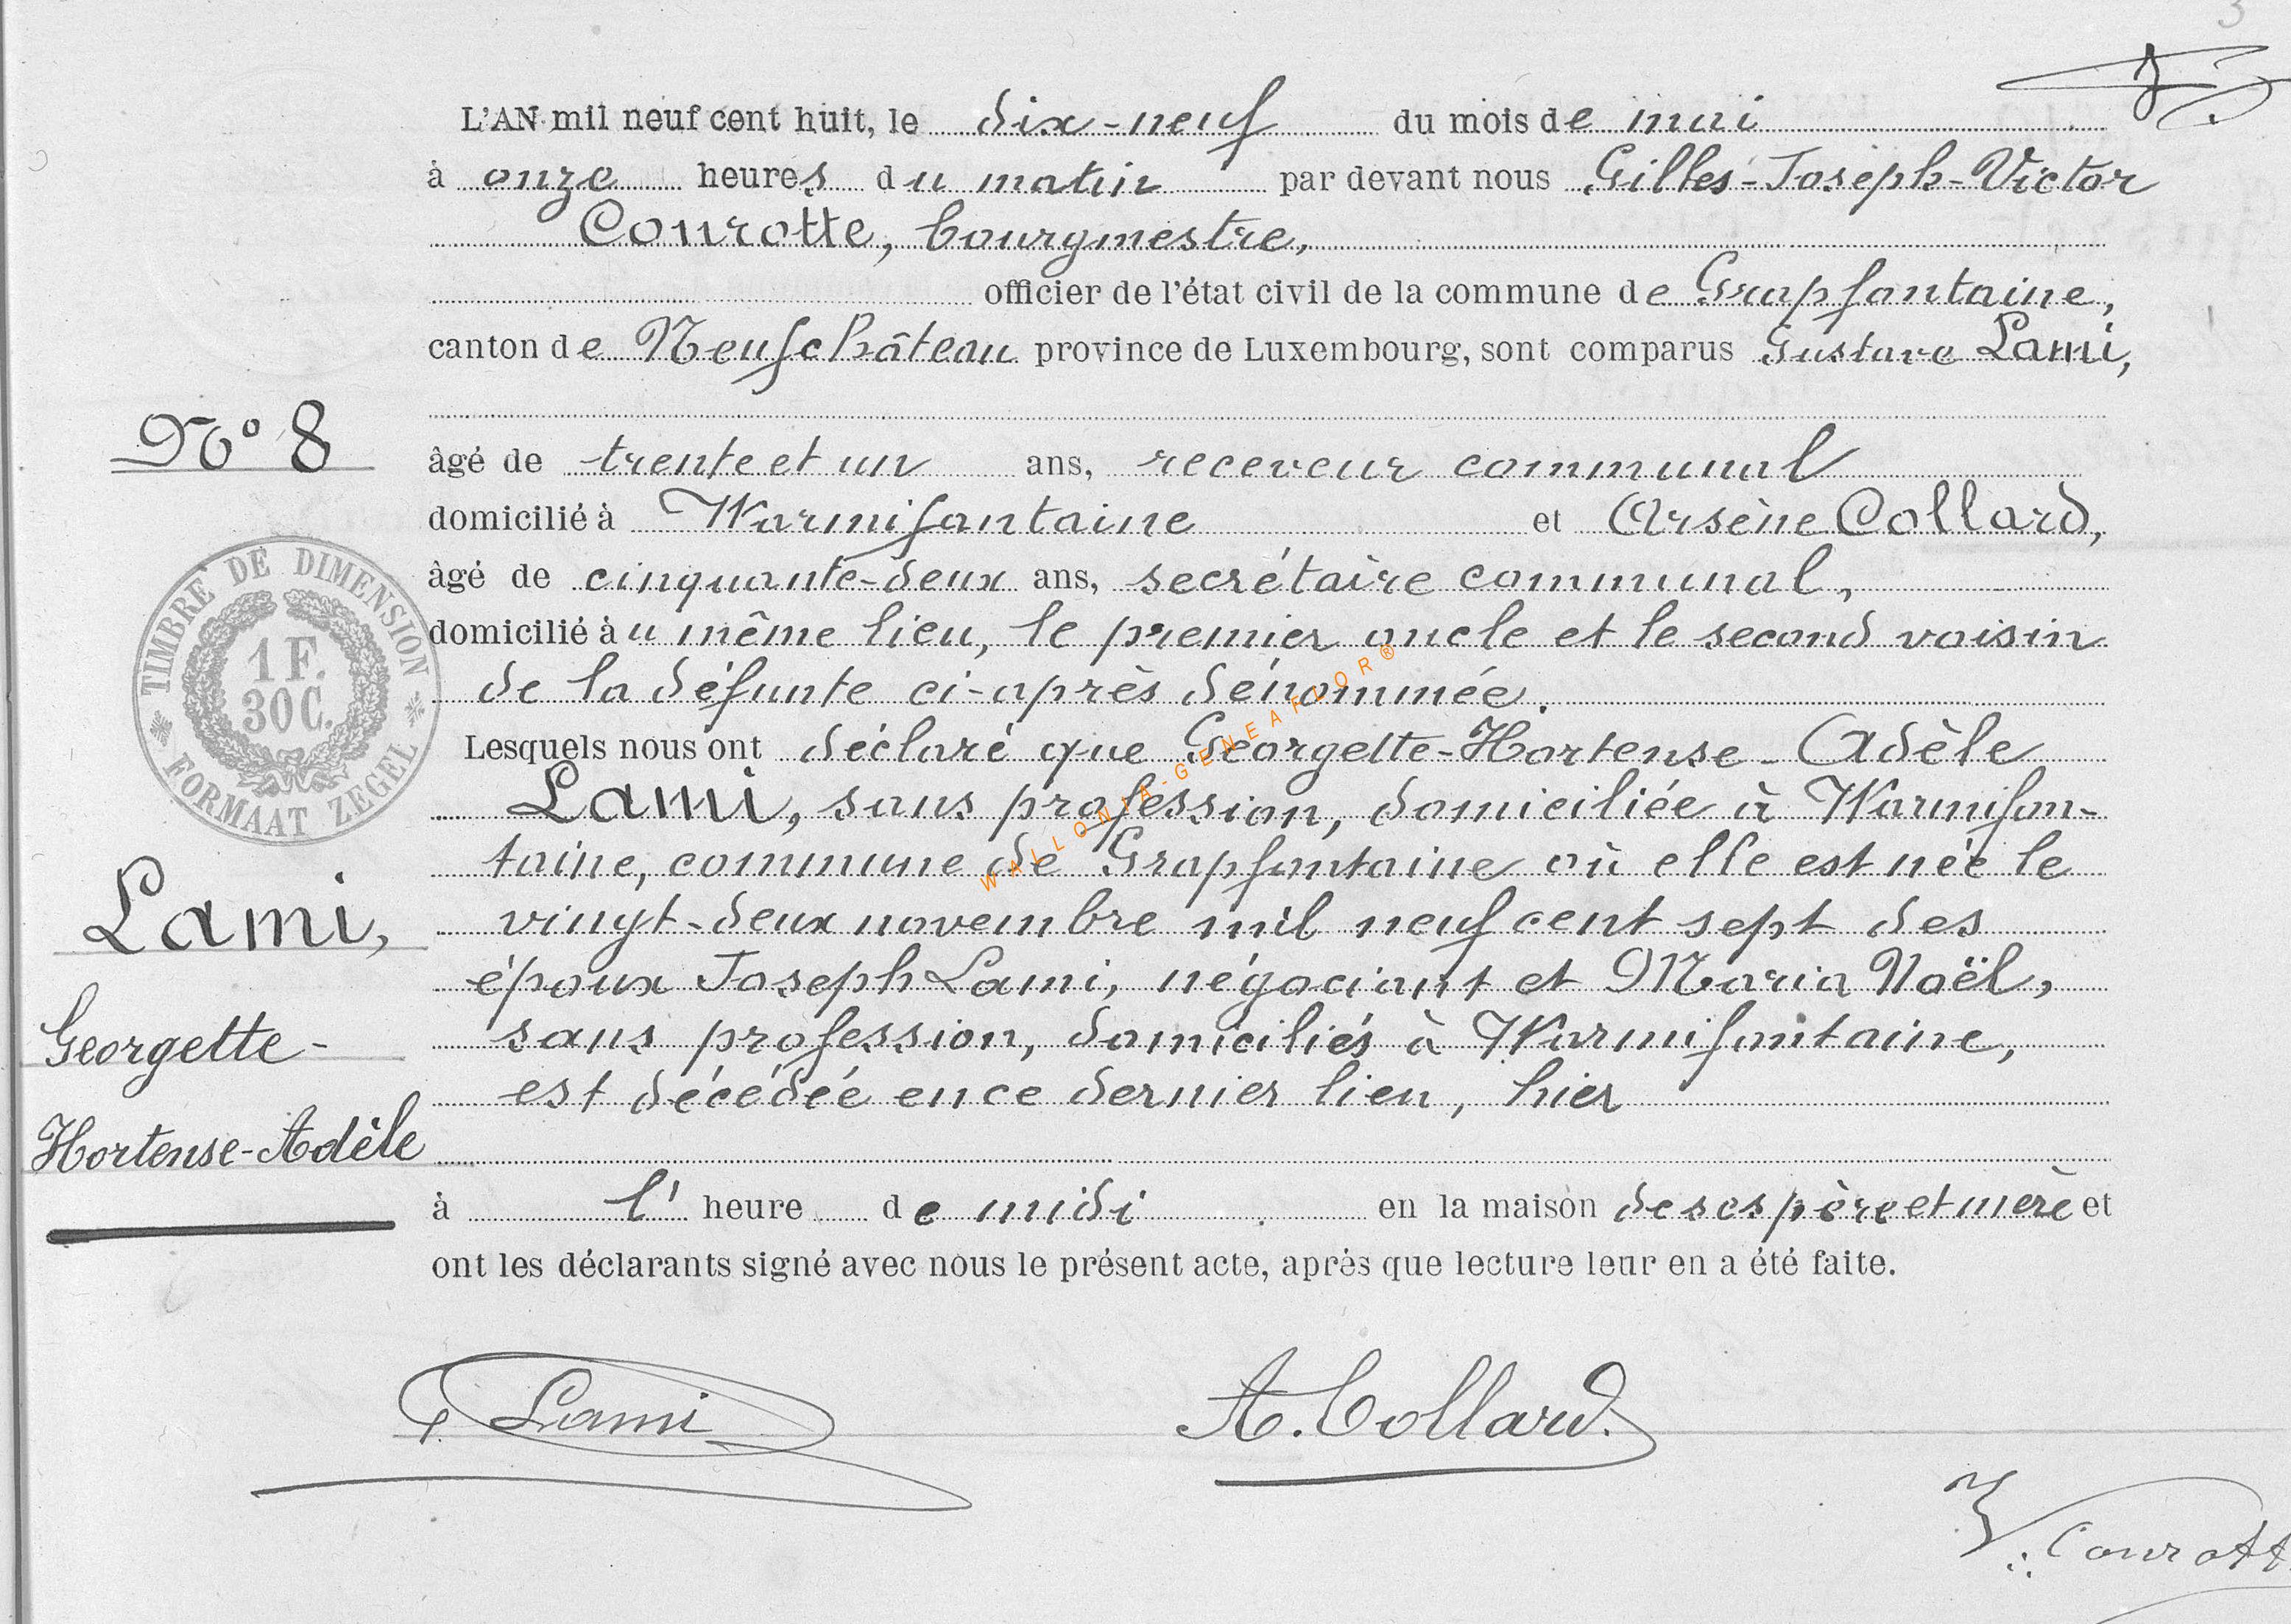 3
L'AN mil neuf cent huit, le dix-neuf du mois de mai
à onze heures du matin par devant nous Gilles-Joseph-Victor
Conrotte, bourgmestre,
officier de l'état civil de la commune de Grapfontaine,
canton de Neufchâteau province de Luxembourg, sont comparus Gustave Lami,
N° 8
âgé de trente et un ans, receveur communal
domicilié à Warmifontaine et Arsène Collard,
âgé de cinquante-deux ans, secrétaire communal,
domicilié au même lieu, le premier oncle et le second voisin
de la défunte ci-après dénommée.
TIMBRE DE DIMENSION
1 F.
30 C.
FORMAAT ZEGEL
Lesquels nous ont déclaré que Georgette-Hortense-Adèle
Lami, sans profession, domiciliée à Warmifon-
taine, commune de Grapfontaine où elle est née le
vingt-deux novembre mil neuf cent sept des
époux Joseph Lami, négociant et Maria Noël,
sans profession, domiciliés à Warmifontaine,
est décédée en ce dernier lieu, hier
WALLONIA-GENEAFLOR®
Lami,
Georgette-
Hortense-Adèle
à l'heure de midi en la maison de ses père et mère et
ont les déclarants signé avec nous le présent acte, après que lecture leur en a été faite.
G. Lami
A. Collard.
V. Conrott